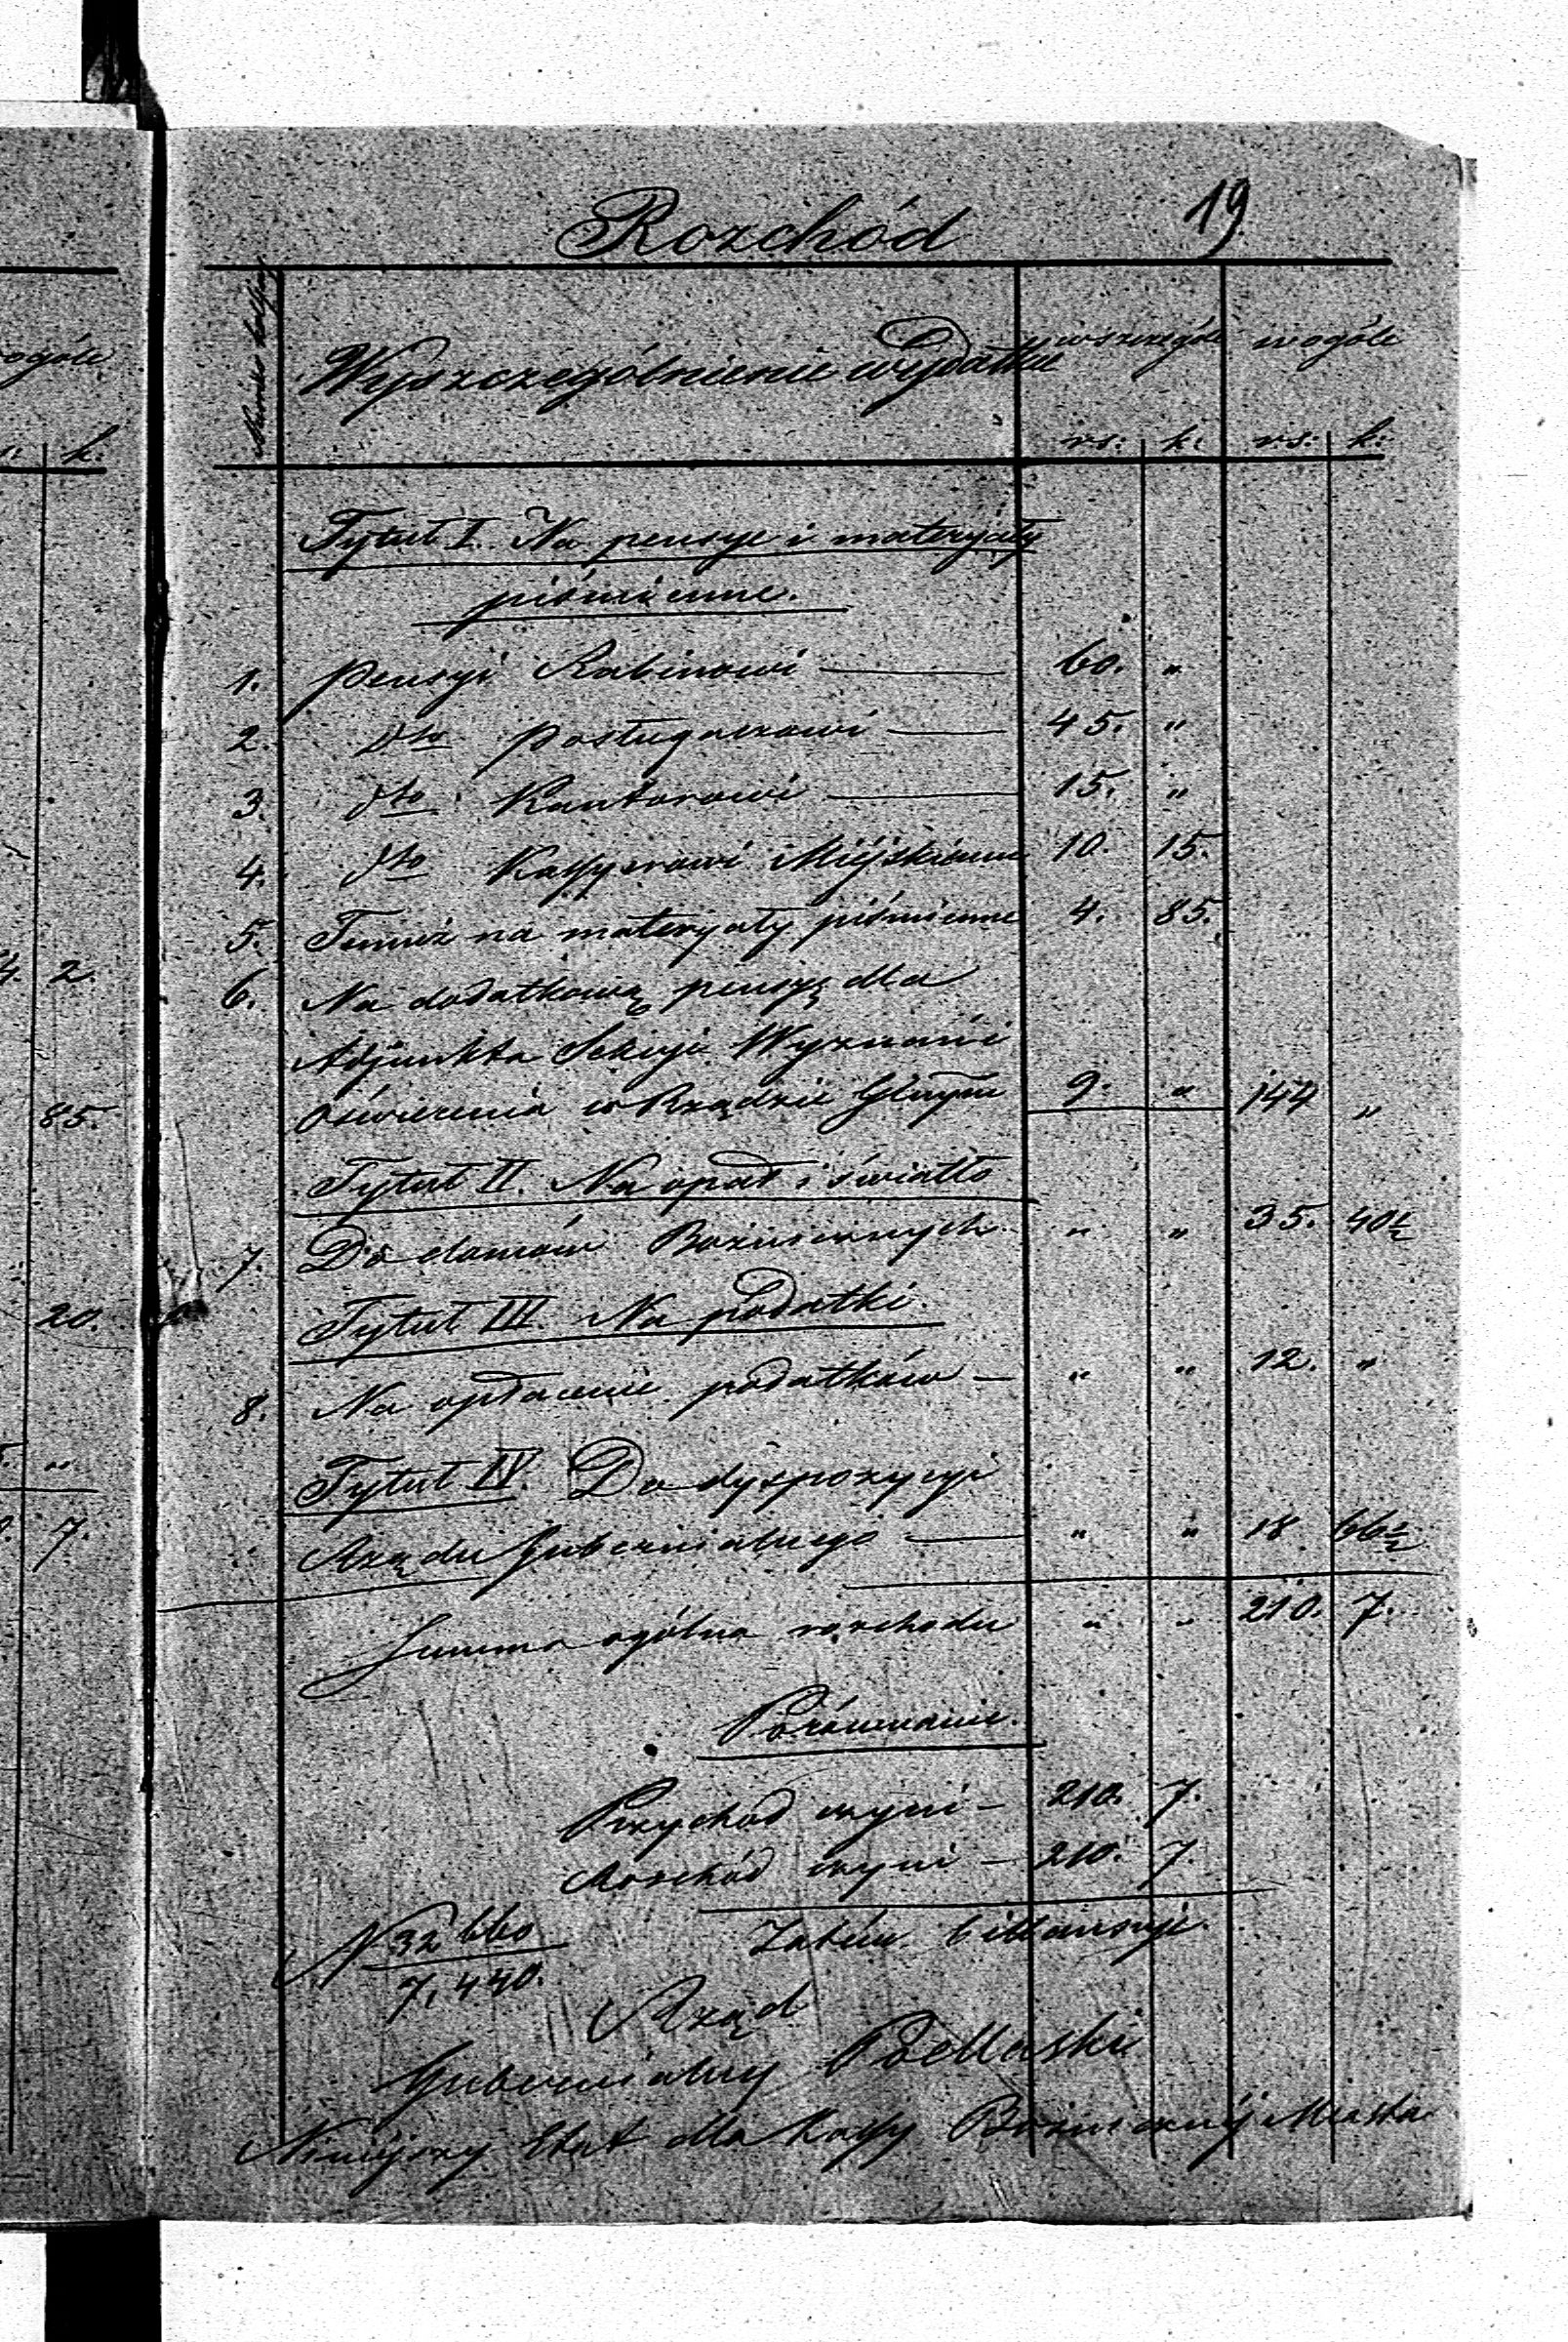 19
Rozchód
ogóle
Wyszczególnienie wydatku w szczególe w ogóle
k: rs: k: rs: k:
Tytuł I. Na pensye i materyały
piśmienne.
1. Pensyi Rabinowi — 60. „
2. dto posługaczowi — 45. „
3. dto Kantorowi — 15. „
4. dto Kassyerowi Miejskiemu 10. 15.
5. Temuż na materyały piśmienne 4. 85.
4. 2. 6. Na dodatkową pensyą dla
Adjunkta Sekcyi Wyznań i
85. Oświecenia w Rządzie Glnym 9. „ 144 „
Tytuł II. Na opał i światło
7. Do domów Bożniczych „ „ 35. 40½
20. Tytuł III. Na podatki.
8. Na opłacenie podatków — „ „ 12. „
„ Tytuł IV. Do dyspozycyi
7. Rządu Gubernialnego — „ „ 18. 66½
Summa ogólna rozchodu „ „ 210. 7.
Porównanie.
Przychód czyni — 210. 7.
Rozchód czyni — 210. 7.
Zatém billansuje.
N 32660
7,440.
Rząd
Gubernialny Podlaski
Niniejszy Etat dla Kassy Bożnicznéj Miasta